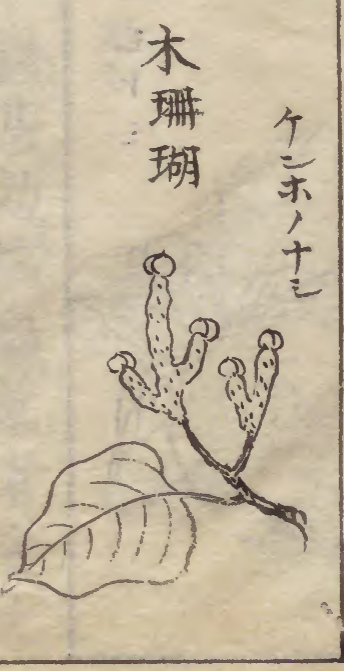 ケンホノナシ
木珊瑚